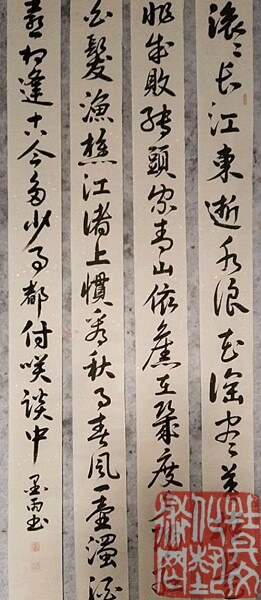 滚〻长江東逝水浪花淘尽英雄是
非成敗转頭空青山依舊在幾度夕阳
白髮漁樵江渚上慣看秋月春風一壺濁酒
喜相逢古今多少事都付咲談中 墨雨书